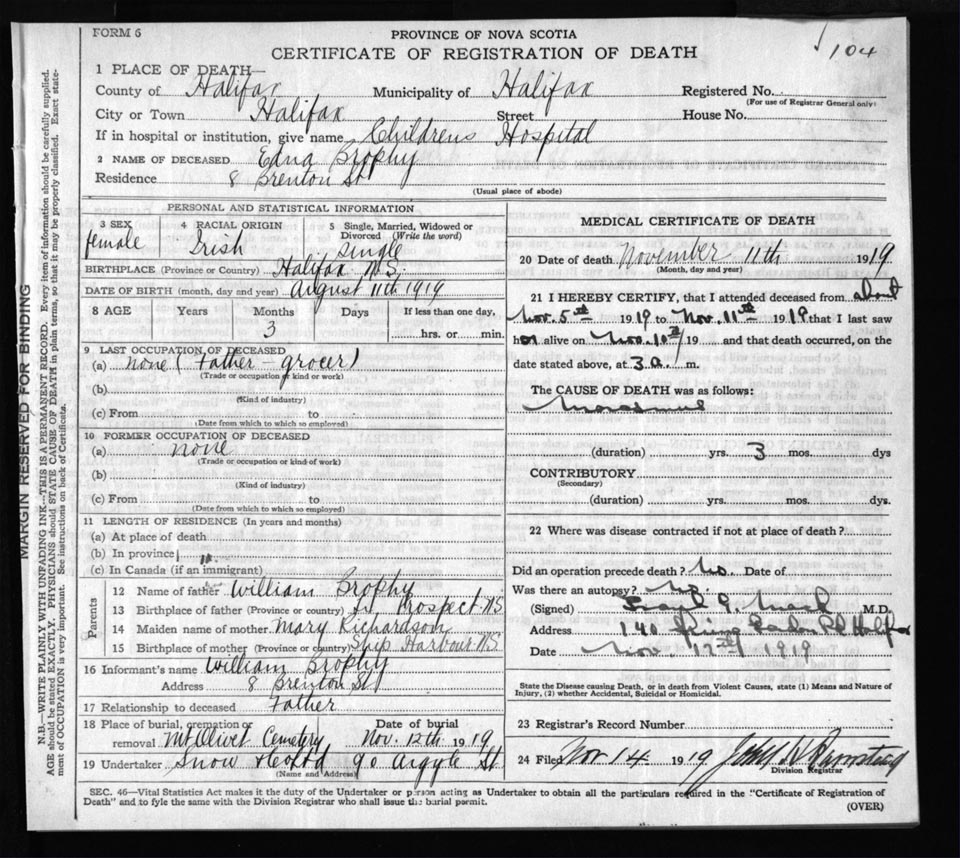 FORM 6
PROVINCE OF NOVA SCOTIA
CERTIFICATE OF REGISTRATION OF DEATH
104
1 PLACE OF DEATH—
County of Halifax Municipality of Halifax Registered No.
(For use of Registrar General only)
City or Town Halifax Street House No.
If in hospital or institution, give name Childrens Hospital
2 NAME OF DECEASED Edna Brophy
Residence 8 Brenton St
(Usual place of abode)
PERSONAL AND STATISTICAL INFORMATION
3 SEX female 4 RACIAL ORIGIN Irish 5 Single, Married, Widowed or Divorced (Write the word) Single
BIRTHPLACE (Province or Country) Halifax N.S.
DATE OF BIRTH (month, day and year) August 11th 1919
8 AGE Years Months 3 Days If less than one day, hrs. or min.
9 LAST OCCUPATION OF DECEASED
(a) none (Father - grocer)
(Trade or occupation or kind or work)
(b)
(Kind of industry)
(c) From to
(Date from which to which so employed)
10 FORMER OCCUPATION OF DECEASED
(a) none
(Trade or occupation or kind of work)
(b)
(Kind of industry)
(c) From to
(Date from which to which so employed)
11 LENGTH OF RESIDENCE (In years and months)
(a) At place of death
(b) In province
(c) In Canada (if an immigrant)
Parents
12 Name of father William Brophy
13 Birthplace of father (Province or country) Prospect NS
14 Maiden name of mother Mary Richardson
15 Birthplace of mother (Province or country) Ship Harbour NS
16 Informant's name William Brophy
Address 8 Brenton St
17 Relationship to deceased Father
18 Place of burial, cremation or removal Mt Olivet Cemetery Date of burial Nov. 12th 1919
19 Undertaker Snow & Co Ltd 90 Argyle St
(Name and Address)
MEDICAL CERTIFICATE OF DEATH
20 Date of death November 11th 1919
(Month, day and year)
21 I HEREBY CERTIFY, that I attended deceased from about
Nov. 5th 1919 to Nov. 11th 1919 that I last saw
her alive on Nov. 10th 19 and that death occurred, on the
date stated above, at 3 a. m.
The CAUSE OF DEATH was as follows:
(duration) yrs. 3 mos. dys
CONTRIBUTORY
(Secondary)
(duration) yrs. mos. dys.
22 Where was disease contracted if not at place of death?
Did an operation precede death? No. Date of
Was there an autopsy? No
(Signed) M.D.
Address 140
Date Nov. 12th 1919
State the Disease causing Death, or in death from Violent Causes, state (1) Means and Nature of
Injury, (2) whether Accidental, Suicidal or Homicidal.
23 Registrar's Record Number
24 Filed Nov 14 1919
Division Registrar
SEC. 46—Vital Statistics Act makes it the duty of the Undertaker or person acting as Undertaker to obtain all the particulars required in the "Certificate of Registration of
Death" and to fyle the same with the Division Registrar who shall issue the burial permit.
(OVER)
MARGIN RESERVED FOR BINDING
N.B.—WRITE PLAINLY WITH UNFADING INK—THIS IS A PERMANENT RECORD. Every item of information should be carefully supplied.
AGE should be stated EXACTLY. PHYSICIANS should STATE CAUSE OF DEATH in plain terms, so that it may be properly classified. Exact state-
ment of OCCUPATION is very important. See instructions on back of Certificate.